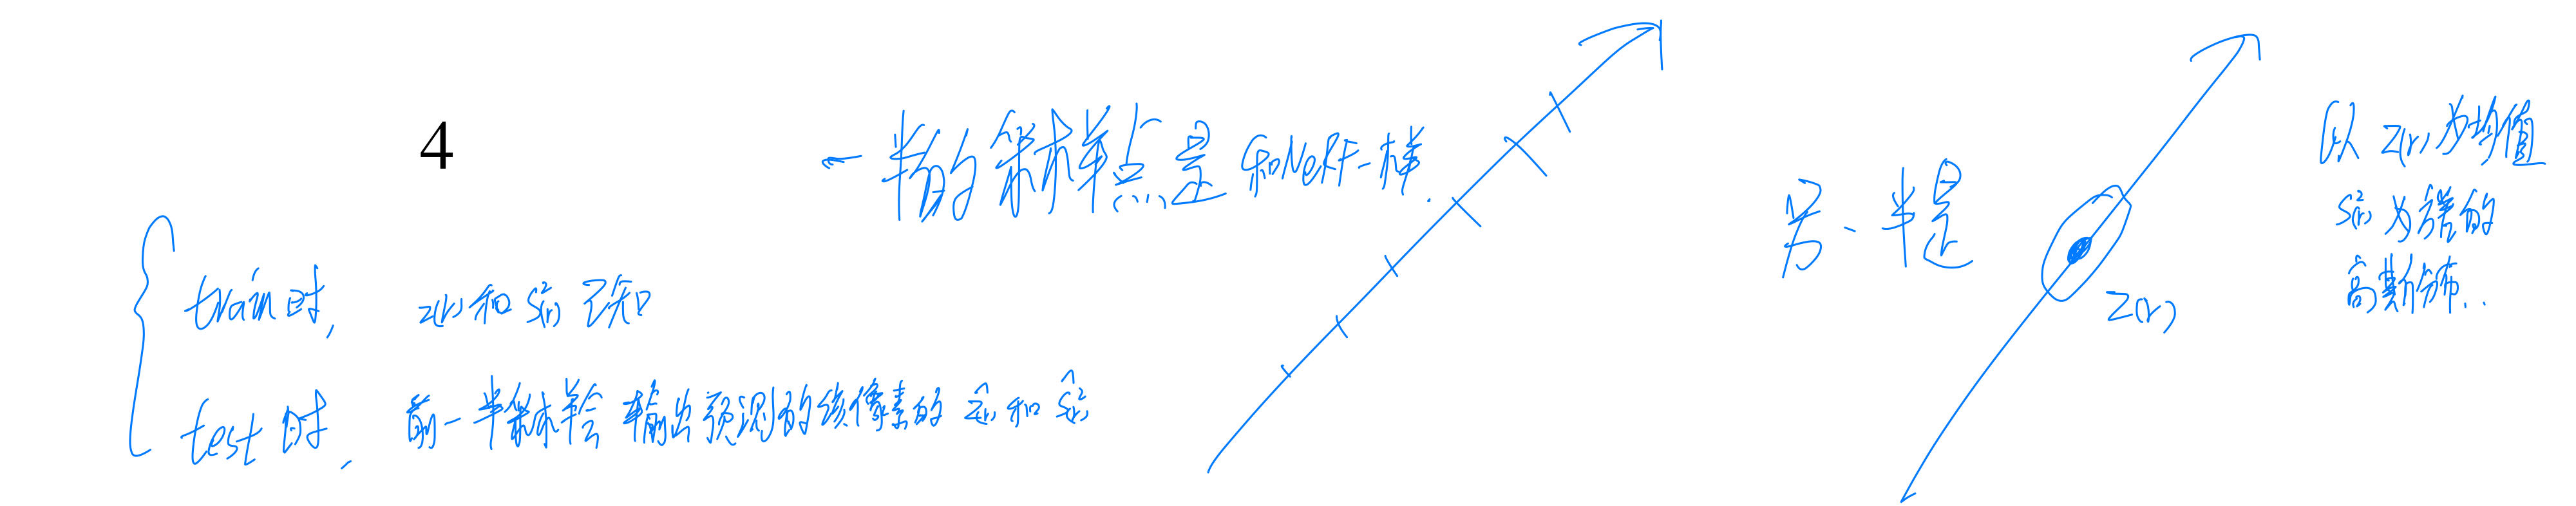 4
一半的采样点是和NeRF一样.
另一半是
Z(r)
以 Z(r) 为均值
S(r)² 为方差的
高斯分布..
train时, z(r)和 S(r)² 已知
test时, 前一半采样会输出预测的该像素的 ẑ(r) 和 ŝ(r)²